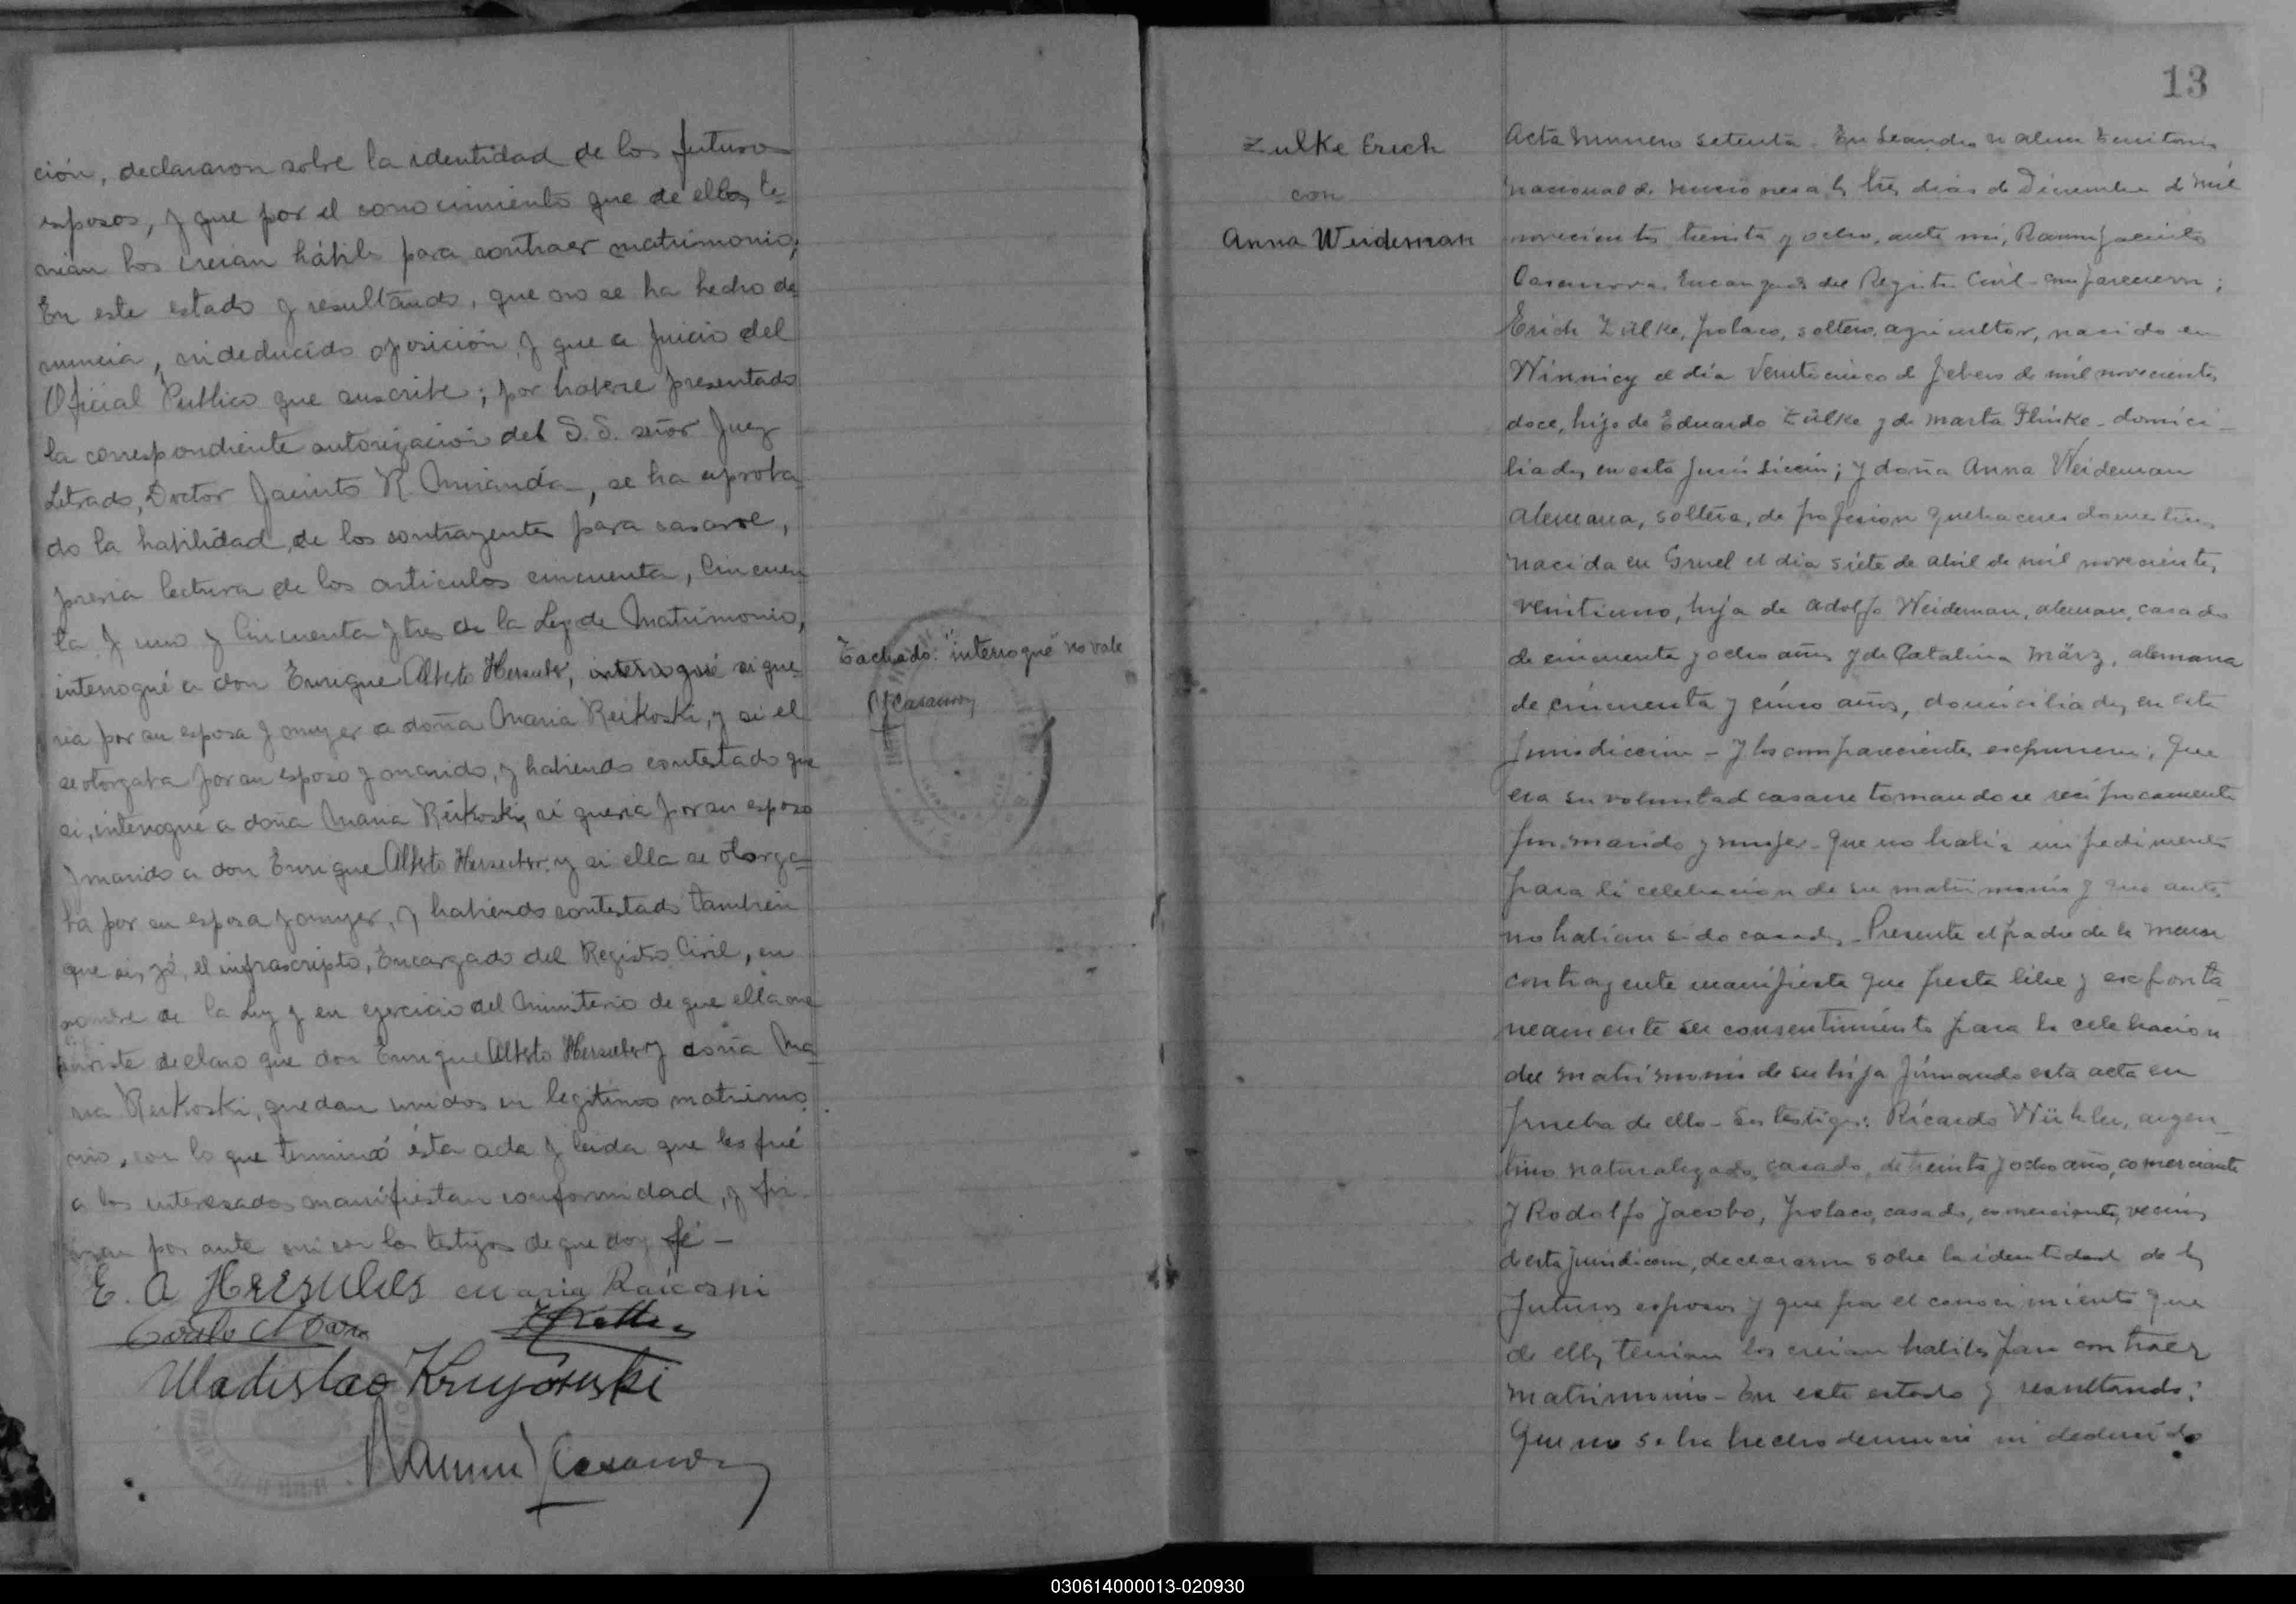 ción, declararon sobre la identidad de los futuros
esposos, y que por el conocimiento que de ellos te-
nian los creian hábiles para contraer matrimonio;
En este estado y resultando, que no se ha hecho de-
nuncia, ni deducido oposición, y que a juicio del
Oficial Publico que suscribe; por haberse presentado
la correspondiente autorización del S. S. señor Juez
Letrado, Doctor Jacinto R. Miranda, se ha aproba-
do la habilidad de los contrayentes para casarse,
previa lectura de los articulos cincuenta, cincuen
ta y uno y cincuenta y tres de la Ley de Matrimonio,
interrogué a don Enrique Alberto, interrogué si que-
ria por su esposa y mujer a doña Maria Reikoski, y si el
se otorgaba por su esposo y marido, y habiendo contestado que
si, interrogué a doña Maria Reikoski, si queria por su esposo
y marido a don Enrique Alberto y si ella se otorga-
ba por su esposa y mujer, y habiendo contestado también
que si, yó, el infrascripto, Encargado del Registro Civil, en
nombre de la Ley y en ejercicio del Ministerio de que ella me
inviste declaro que don Enrique Alberto y doña Ma-
ria Reikoski, quedan unidos en legitimo matrimo-
nio, con lo que terminó ésta acta y leida que les fué
a los interesados manifiestan conformidad, y fir-
man por ante mi con los testigos de que doy fé -
E. A
Maria Raicoski
Uladislao
Ramon J Casanova
Tachado: "interrogué" no vale
RJCasanova
13
Zulke Erich
con
Anna Weideman
Acta numero setenta. En Leandro N Alem Territorio
nacional de Misiones a los tres dias de Diciembre de mil
novecientos treinta y ocho, ante mi, Ramon Jacinto
Casanova, Encargado del Registro Civil - comparecieron;
Erich Zülke, polaco, soltero, agricultor, nacido en
Winnicz el día veinticinco de febrero de mil novecientos
doce, hijo de Eduardo Zülke y de Marta Flinke - domici-
liados en esta jurisdicción; y doña Anna Weideman
Alemana, soltera, de profesion quehaceres domesticos
nacida en Gruel el dia siete de abril de mil novecientos
veintiuno, hija de Adolfo Weideman, aleman, casado
de cincuenta y ocho años y de Catalina März, alemana
de cincuenta y cinco años, domiciliados en esta
Jurisdiccion - y los comparecientes expusieron: que
era su voluntad casarse tomandose reciprocamente
por marido y mujer - que no habia impedimento
para la celebracion de su matrimonio y que antes
no habian sido casados - Presente el padre de la menor
contrayente manifiesta que presta libre y esponta-
neamente su consentimiento para la celebracion
del matrimonio de su hija firmando esta acta en
prueba de ello - Los testigos: Ricardo Wühler, argen-
tino naturalizado, casado, de treinta y ocho años, comerciante
y Rodolfo Jacobo, polaco, casado, comerciante, vecinos
de esta jurisdiccion, declararon sobre la identidad de los
futuros esposos y que por el conocimiento que
de ellos tenian los creian habiles para contraer
matrimonio - En este estado y resultando:
Que no se ha hecho denuncia ni deducido
030614000013-020930